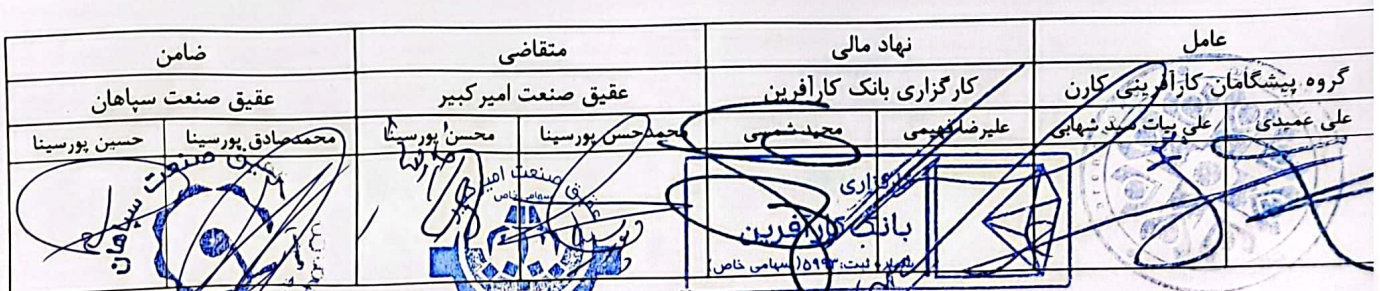 عامل نهاد مالی متقاضی ضامن
گروه پیشگامان کارآفرینی کارن کارگزاری بانک کارآفرین عقیق صنعت امیرکبیر عقیق صنعت سپاهان
علی عمیدی علی بیات سید شهابی علیرضا فهیمی مجید شمسی محمدحسن پورسینا محسن پورسینا محمدصادق پورسینا حسین پورسینا
کارگزاری
بانک کارآفرین
شماره ثبت: ۵۹۹۳ (سهامی خاص)
عقیق صنعت امیر
سهامی خاص
عقیق صنعت سپاهان